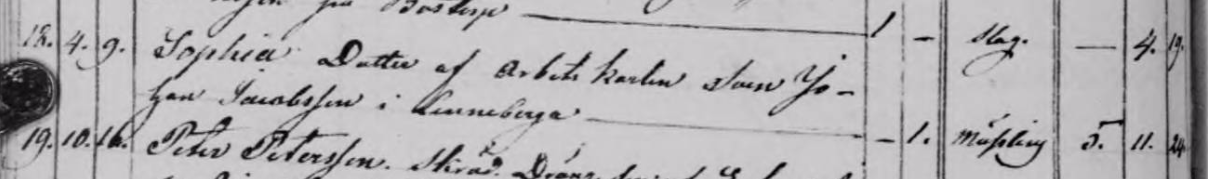 från Bosterp 1
18. 4. 9. Sophia Dotter af Arbets karlen Sven Jo- — Slag. — 4. 19.
han Jacobsson i Linneberga
19. 10. 16. Peter Petersson. Skräd. Dräng — 1. Mäßling 5. 11. 24.